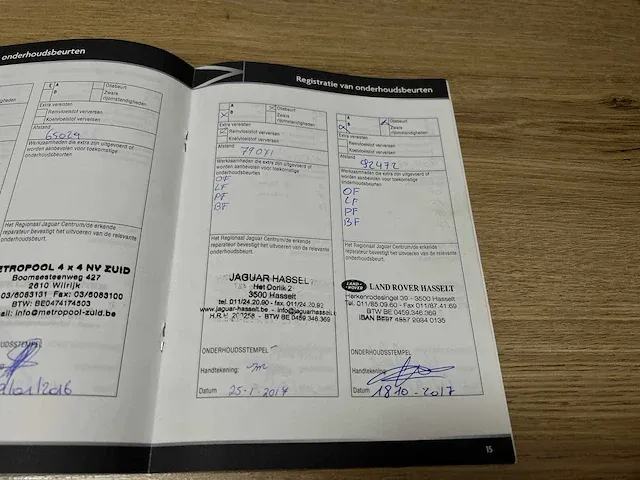 onderhoudsbeurten
A
B
Oliebeurt
Zware
rijomstandigheden
Extra vereisten
Remvloeistof verversen
Koelvloeistof verversen
Afstand
65029
Werkzaamheden die extra zijn uitgevoerd of
worden aanbevolen voor toekomstige
onderhoudsbeurten
Het Regionaal Jaguar Centrum/de erkende
reparateur bevestigt het uitvoeren van de relevante
onderhoudsbeurt.
METROPOOL 4 x 4 NV ZUID
Boomsesteenweg 427
2610 Wilrijk
03/6083131 Fax: 03/6083100
BTW: BE0474174503
info@metropool-zuid.be
/01/2016
Registratie van onderhoudsbeurten
A
B
Oliebeurt
Zware
rijomstandigheden
Extra vereisten
Remvloeistof verversen
Koelvloeistof verversen
Afstand
79071
Werkzaamheden die extra zijn uitgevoerd of
worden aanbevolen voor toekomstige
onderhoudsbeurten
OF
LF
PF
BF
Het Regionaal Jaguar Centrum/de erkende
reparateur bevestigt het uitvoeren van de relevante
onderhoudsbeurt.
JAGUAR HASSELT
Het Dorlik 2
3500 Hasselt
tel. 011/24.20.90 - fax. 011/24.20.92
www.jaguar-hasselt.be - info@jaguarhasselt.
BTW BE 0459.346.369
ONDERHOUDSSTEMPEL
Handtekening:
Datum 25-1-2017
A
B
Oliebeurt
Zware
rijomstandigheden
Extra vereisten
Remvloeistof verversen
Koelvloeistof verversen
Afstand
92472
Werkzaamheden die extra zijn uitgevoerd of
worden aanbevolen voor toekomstige
onderhoudsbeurten
OF
LF
PF
BF
Het Regionaal Jaguar Centrum/de erkende
reparateur bevestigt het uitvoeren van de relevante
onderhoudsbeurt.
LAND ROVER
LAND ROVER HASSELT
Herkenrodesingel 39 - 3500 Hasselt
Tel. 011/85.09.60 - Fax 011/87.41.69
BTW BE 0459.346.369
ONDERHOUDSSTEMPEL
Handtekening:
Datum 18 10 - 2017
15